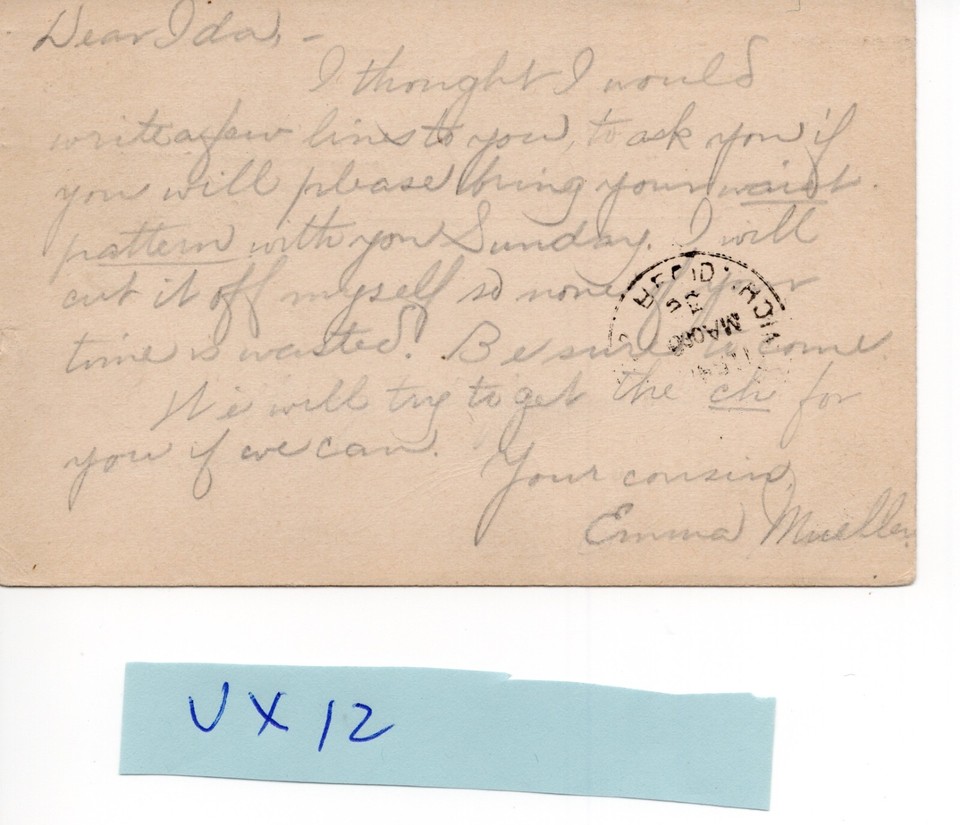 Dear Ida, -
I thought I would
write a few lines to you, to ask you if
you will please bring your waist
pattern with you Sunday. I will
cut it off myself so none of your
time is wasted. Be sure to come.
We will try to get the ch for
you if we can.
Your cousin,
Emma Mueller
REC'D. MICH.
UX12